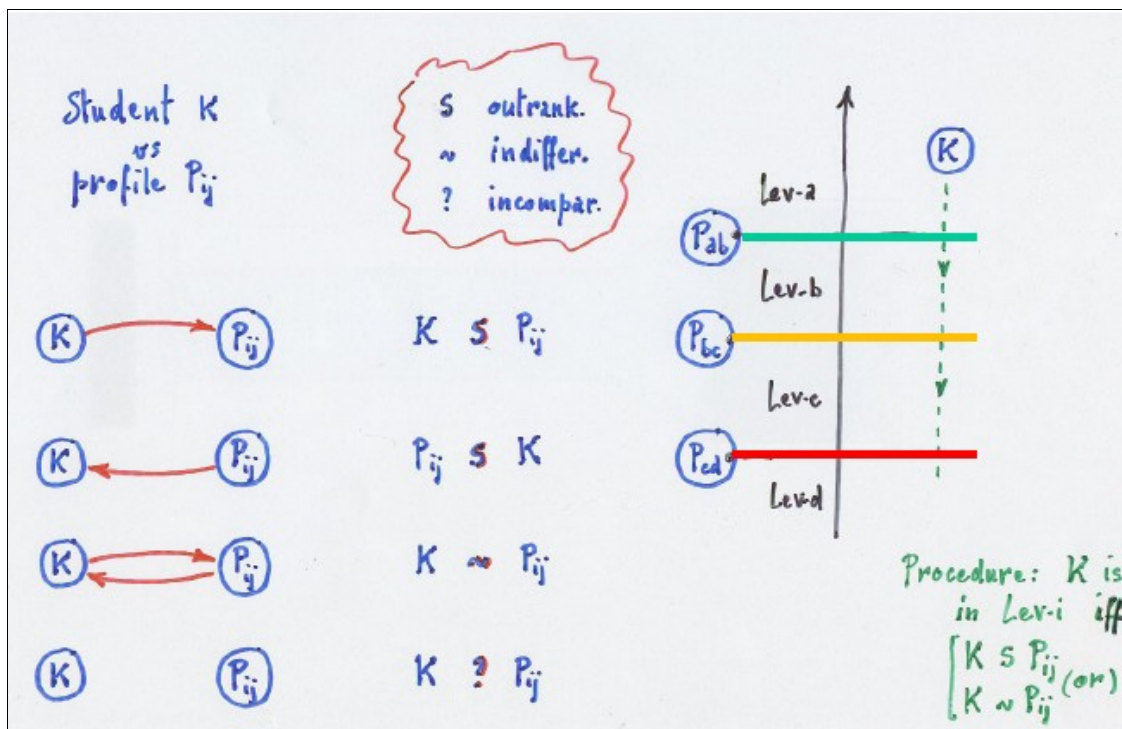 Student K
vs
profile Pij
S outrank.
~ indiffer.
? incompar.
K Pij
K S Pij
K Pij
Pij S K
K Pij
K ~ Pij
K Pij
K ? Pij
K
Lev-a
Pab
Lev-b
Pbc
Lev-c
Pcd
Lev-d
Procedure: K is
in Lev-i iff
K S Pij
(or)
K ~ Pij